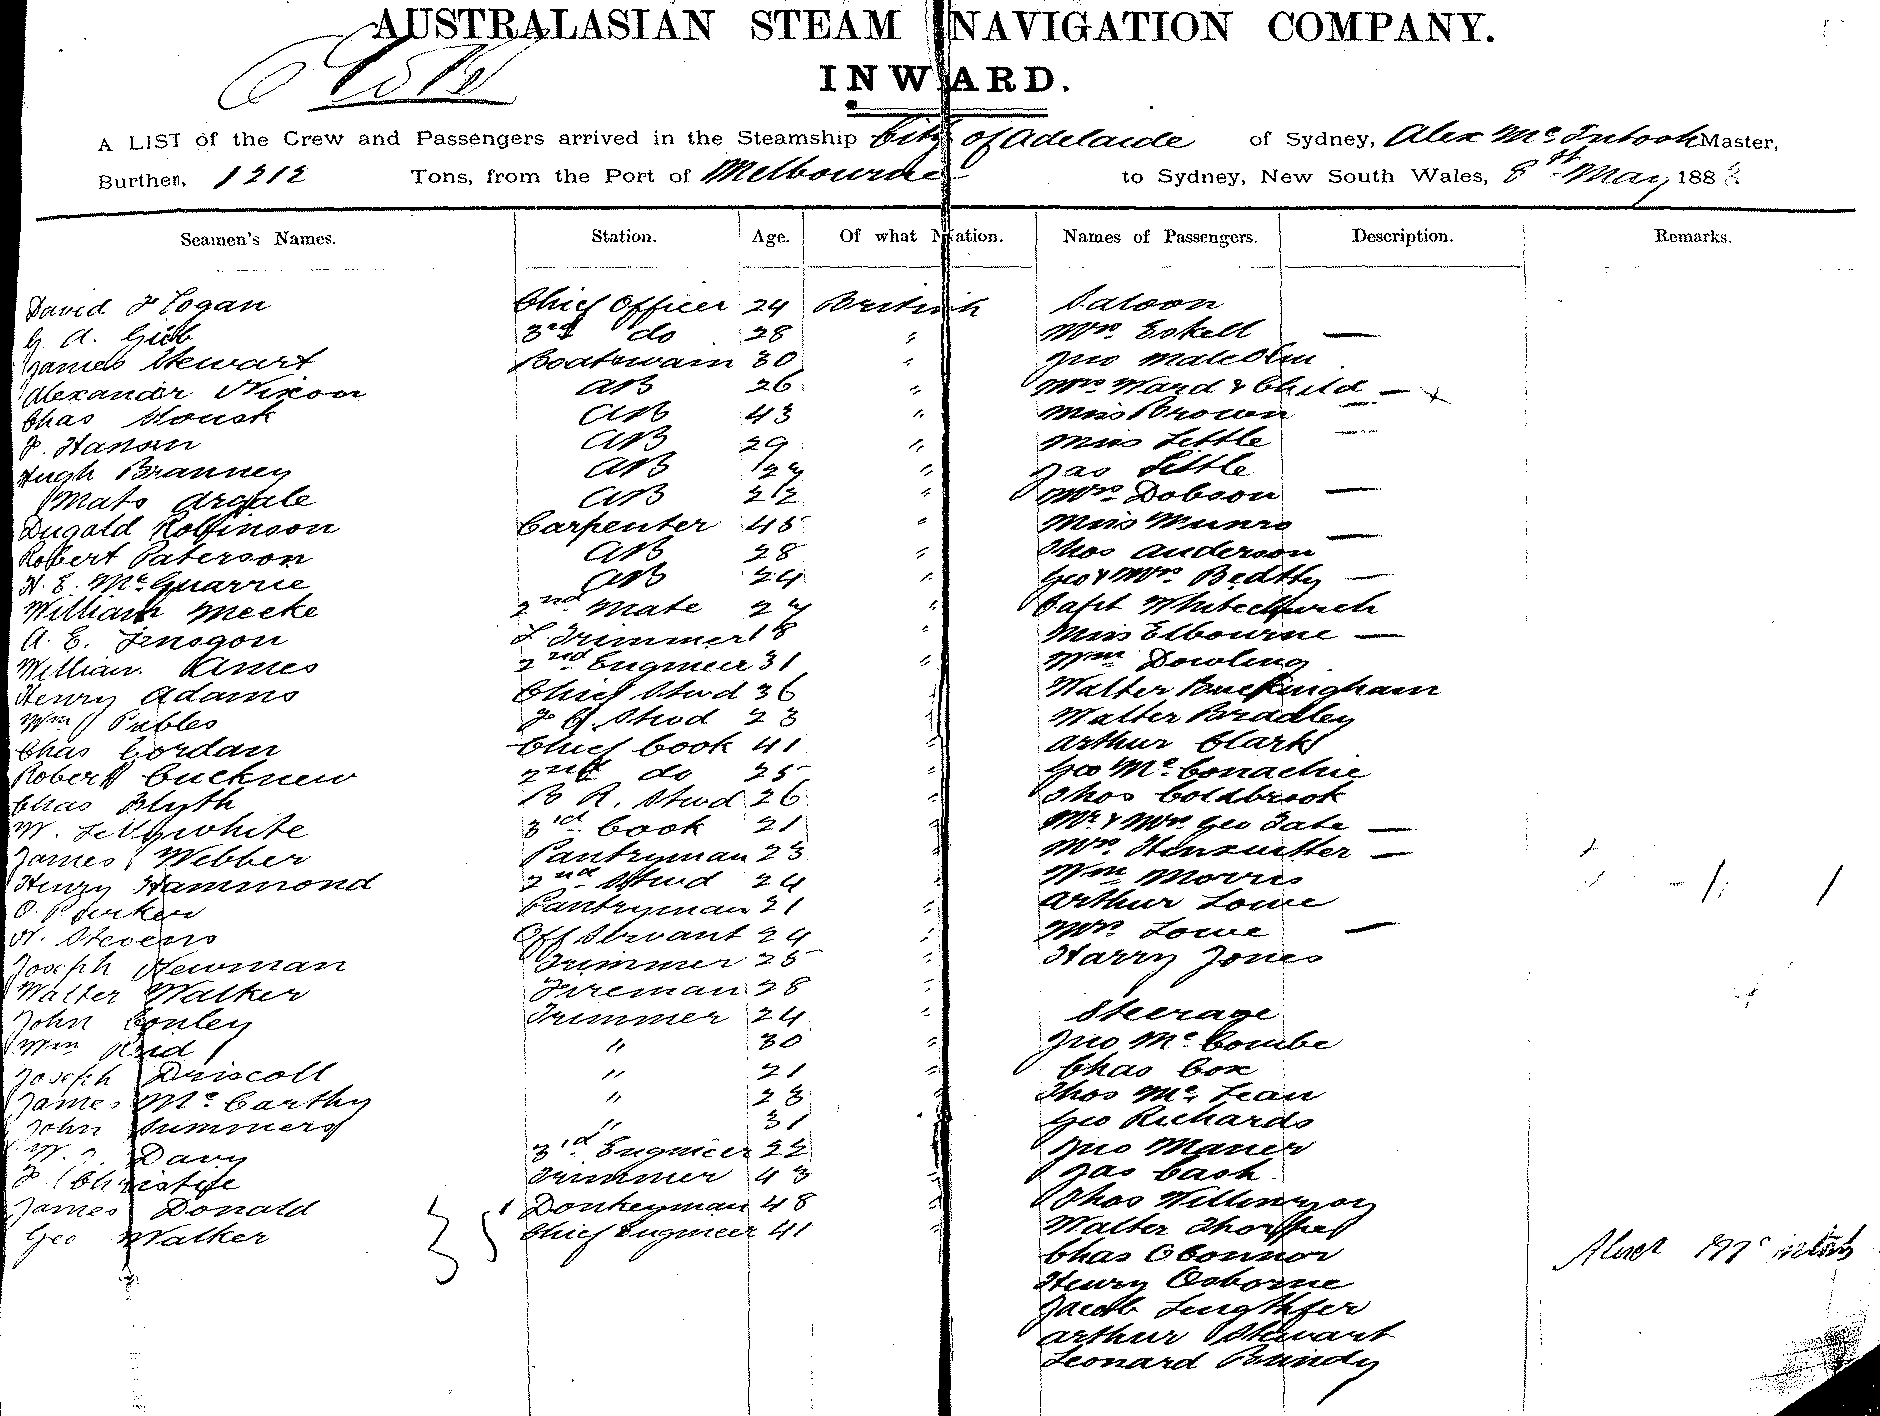 AUSTRALASIAN STEAM NAVIGATION COMPANY.
INWARD.
A LIST of the Crew and Passengers arrived in the Steamship City of Adelaide of Sydney, Alex McIntosh Master,
Burthen, 1212 Tons, from the Port of Melbourne to Sydney, New South Wales, 8th May 188
Seamen's Names. Station. Age. Of what Nation. Names of Passengers. Description. Remarks.
David Logan Chief Officer 24 British Saloon
G. A. Gibb 3rd do 28 " Mrs Eskell —
James Stewart Boatswain 30 " Jno Malcolm
Alexander Nixon AB 26 " Mrs Ward & Child —
Chas AB 43 " Miss Brown —
Hanson AB 29 " Miss Little —
Hugh Branney AB " Jas Little
Mats Argale AB 22 " Mrs Dobson —
Dugald Robinson Carpenter 45 " Miss Munro —
Robert Paterson AB 28 " Thos Anderson
McQuarrie AB 24 " Geo & Mrs —
William Meeke 2nd Mate " Capt Whitechurch
A. E. Trimmer 18 Miss Elbourne —
William James 2nd Engineer 31 " Wm Dowling
Henry Adams Chief Stwd 36 Walter Buckingham
Wm Stwd 23 " Walter Bradley
Chas Gordan Chief Cook 41 " Arthur Clark
Robert Cucknew 2nd do 25 " Geo McConachie
Chas Blyth B R. Stwd 26 " Thos Coldbrook
W. Lillywhite 3rd Cook 21 " Mr & Mrs Geo Tate —
James Webber Pantryman 23 " Mrs —
Henry Hammond 2nd Stwd 24 " Wm Morris
Pantryman 21 " Arthur Lowe
Stevens Off Servant 24 " Mrs Lowe —
Joseph Newman Trimmer 25 " Harry Jones
Walter Walker Fireman 28 "
John Conley Trimmer 24 " Steerage
Wm Reid " 30 " Jno McCombe
Joseph Driscoll " 21 " Chas Cox
James McCarthy " 23 " Thos McLean
John Summers " 31 Geo Richards
W. Davy 3rd Engineer 22 " Jno Maner
Christie Trimmer 43 " Jas Cash
James Donald Donkeyman 48 " Thos
Geo Walker Chief Engineer 41 " Walter
Chas OConnor
Henry Osborne
Jacob
Arthur Stewart
Leonard Bundy
Alexr McIntosh